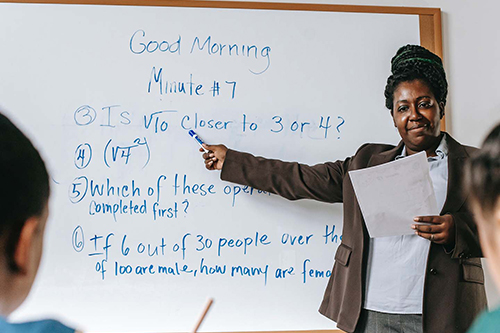 Good Morning
Minute #7
③ Is √10 closer to 3 or 4?
④ (√4²)
⑤ Which of these oper
completed first?
⑥ If 6 out of 30 people over the
of 100 are male, how many are fema